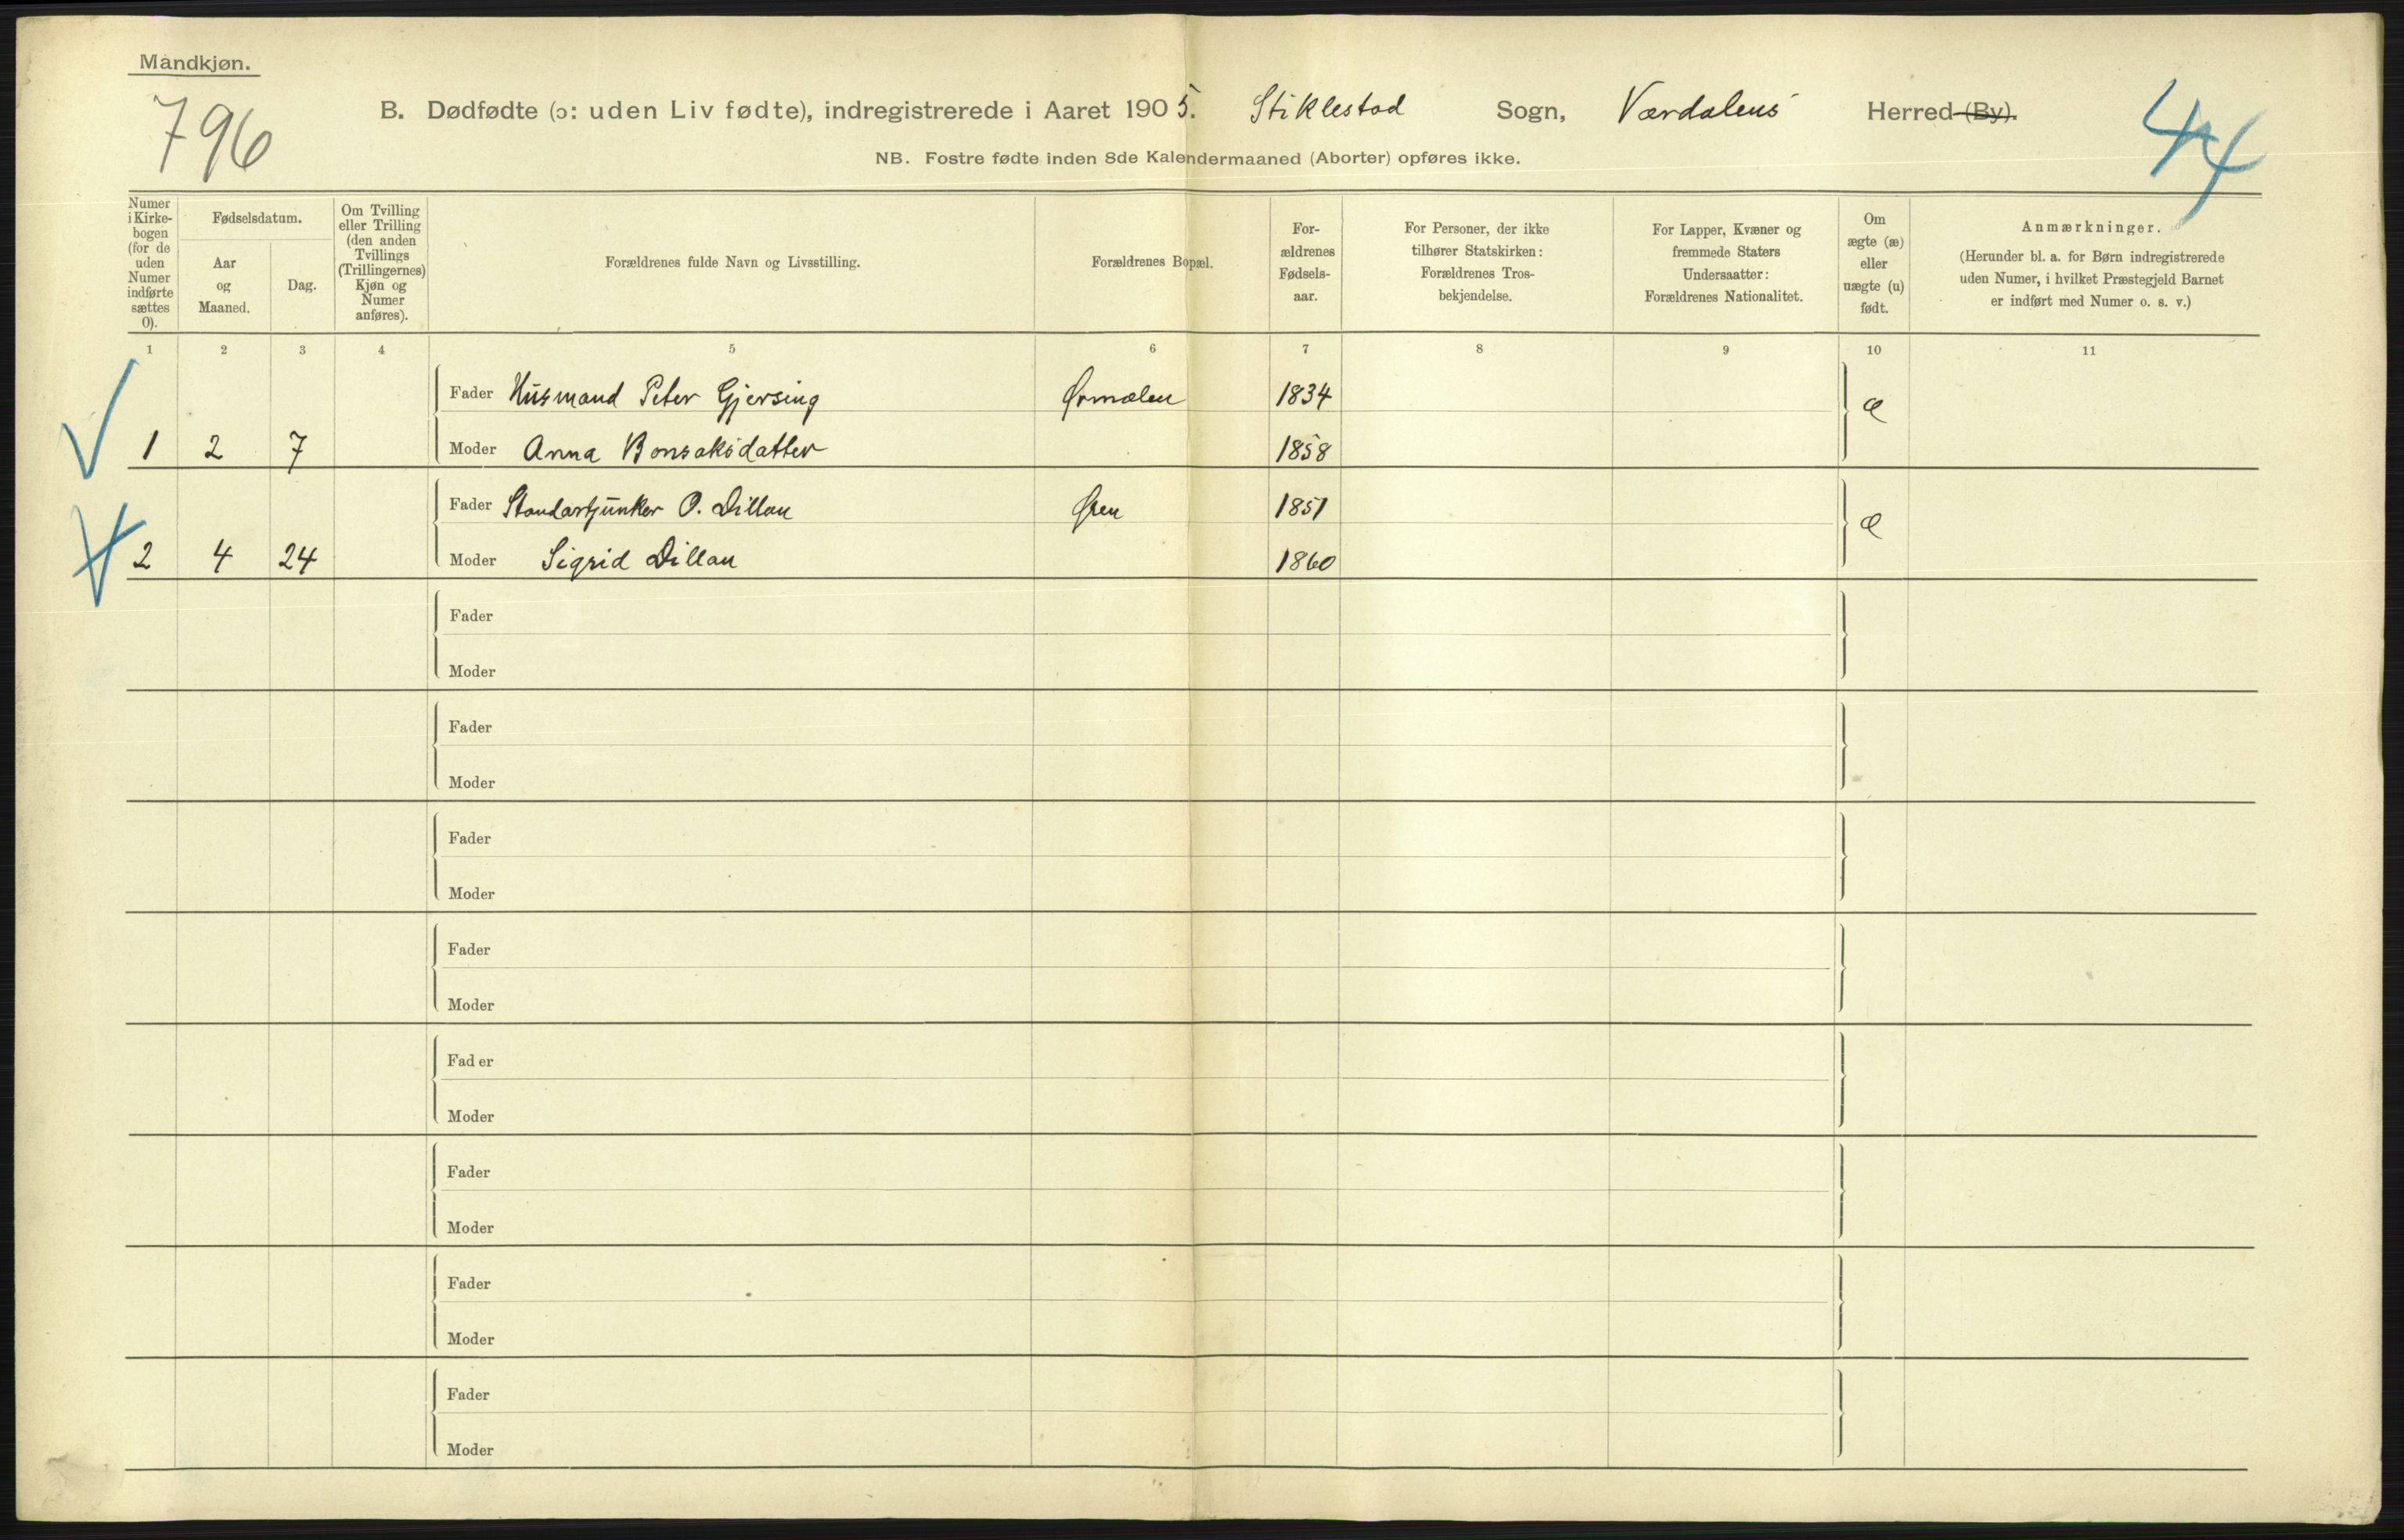 Mandkjøn.
796
B. Dødfødte (ɔ: uden Liv fødte), indregistrerede i Aaret 1905. Stiklestad Sogn, Værdalens Herred (By).
44
NB. Fostre fødte inden 8de Kalendermaaned (Aborter) opføres ikke.
Numer i Kirke-bogen (for de uden Numer indførte sættes 0).
Fødselsdatum.
Aar og Maaned.
Dag.
Om Tvilling eller Trilling (den anden Tvillings (Trillingernes) Kjøn og Numer anføres).
Forældrenes fulde Navn og Livsstilling.
Forældrenes Bopæl.
For-ældrenes Fødsels-aar.
For Personer, der ikke tilhører Statskirken: Forældrenes Tros-bekjendelse.
For Lapper, Kvæner og fremmede Staters Undersaatter: Forældrenes Nationalitet.
Om ægte (æ) eller uægte (u) født.
Anmærkninger.
(Herunder bl. a. for Børn indregistrerede uden Numer, i hvilket Præstegjeld Barnet er indført med Numer o. s. v.)
1 2 3 4 5 6 7 8 9 10 11
Fader Husmand Peter Gjersing Ørmælen 1834 æ
1 2 7 Moder Anna Bonsaksdatter 1858
Fader Standartjunker O. Dillan 1851 æ
2 4 24 Moder Sigrid Dillan 1860
Fader
Moder
Fader
Moder
Fader
Moder
Fader
Moder
Fader
Moder
Fader
Moder
Fader
Moder
Fader
Moder